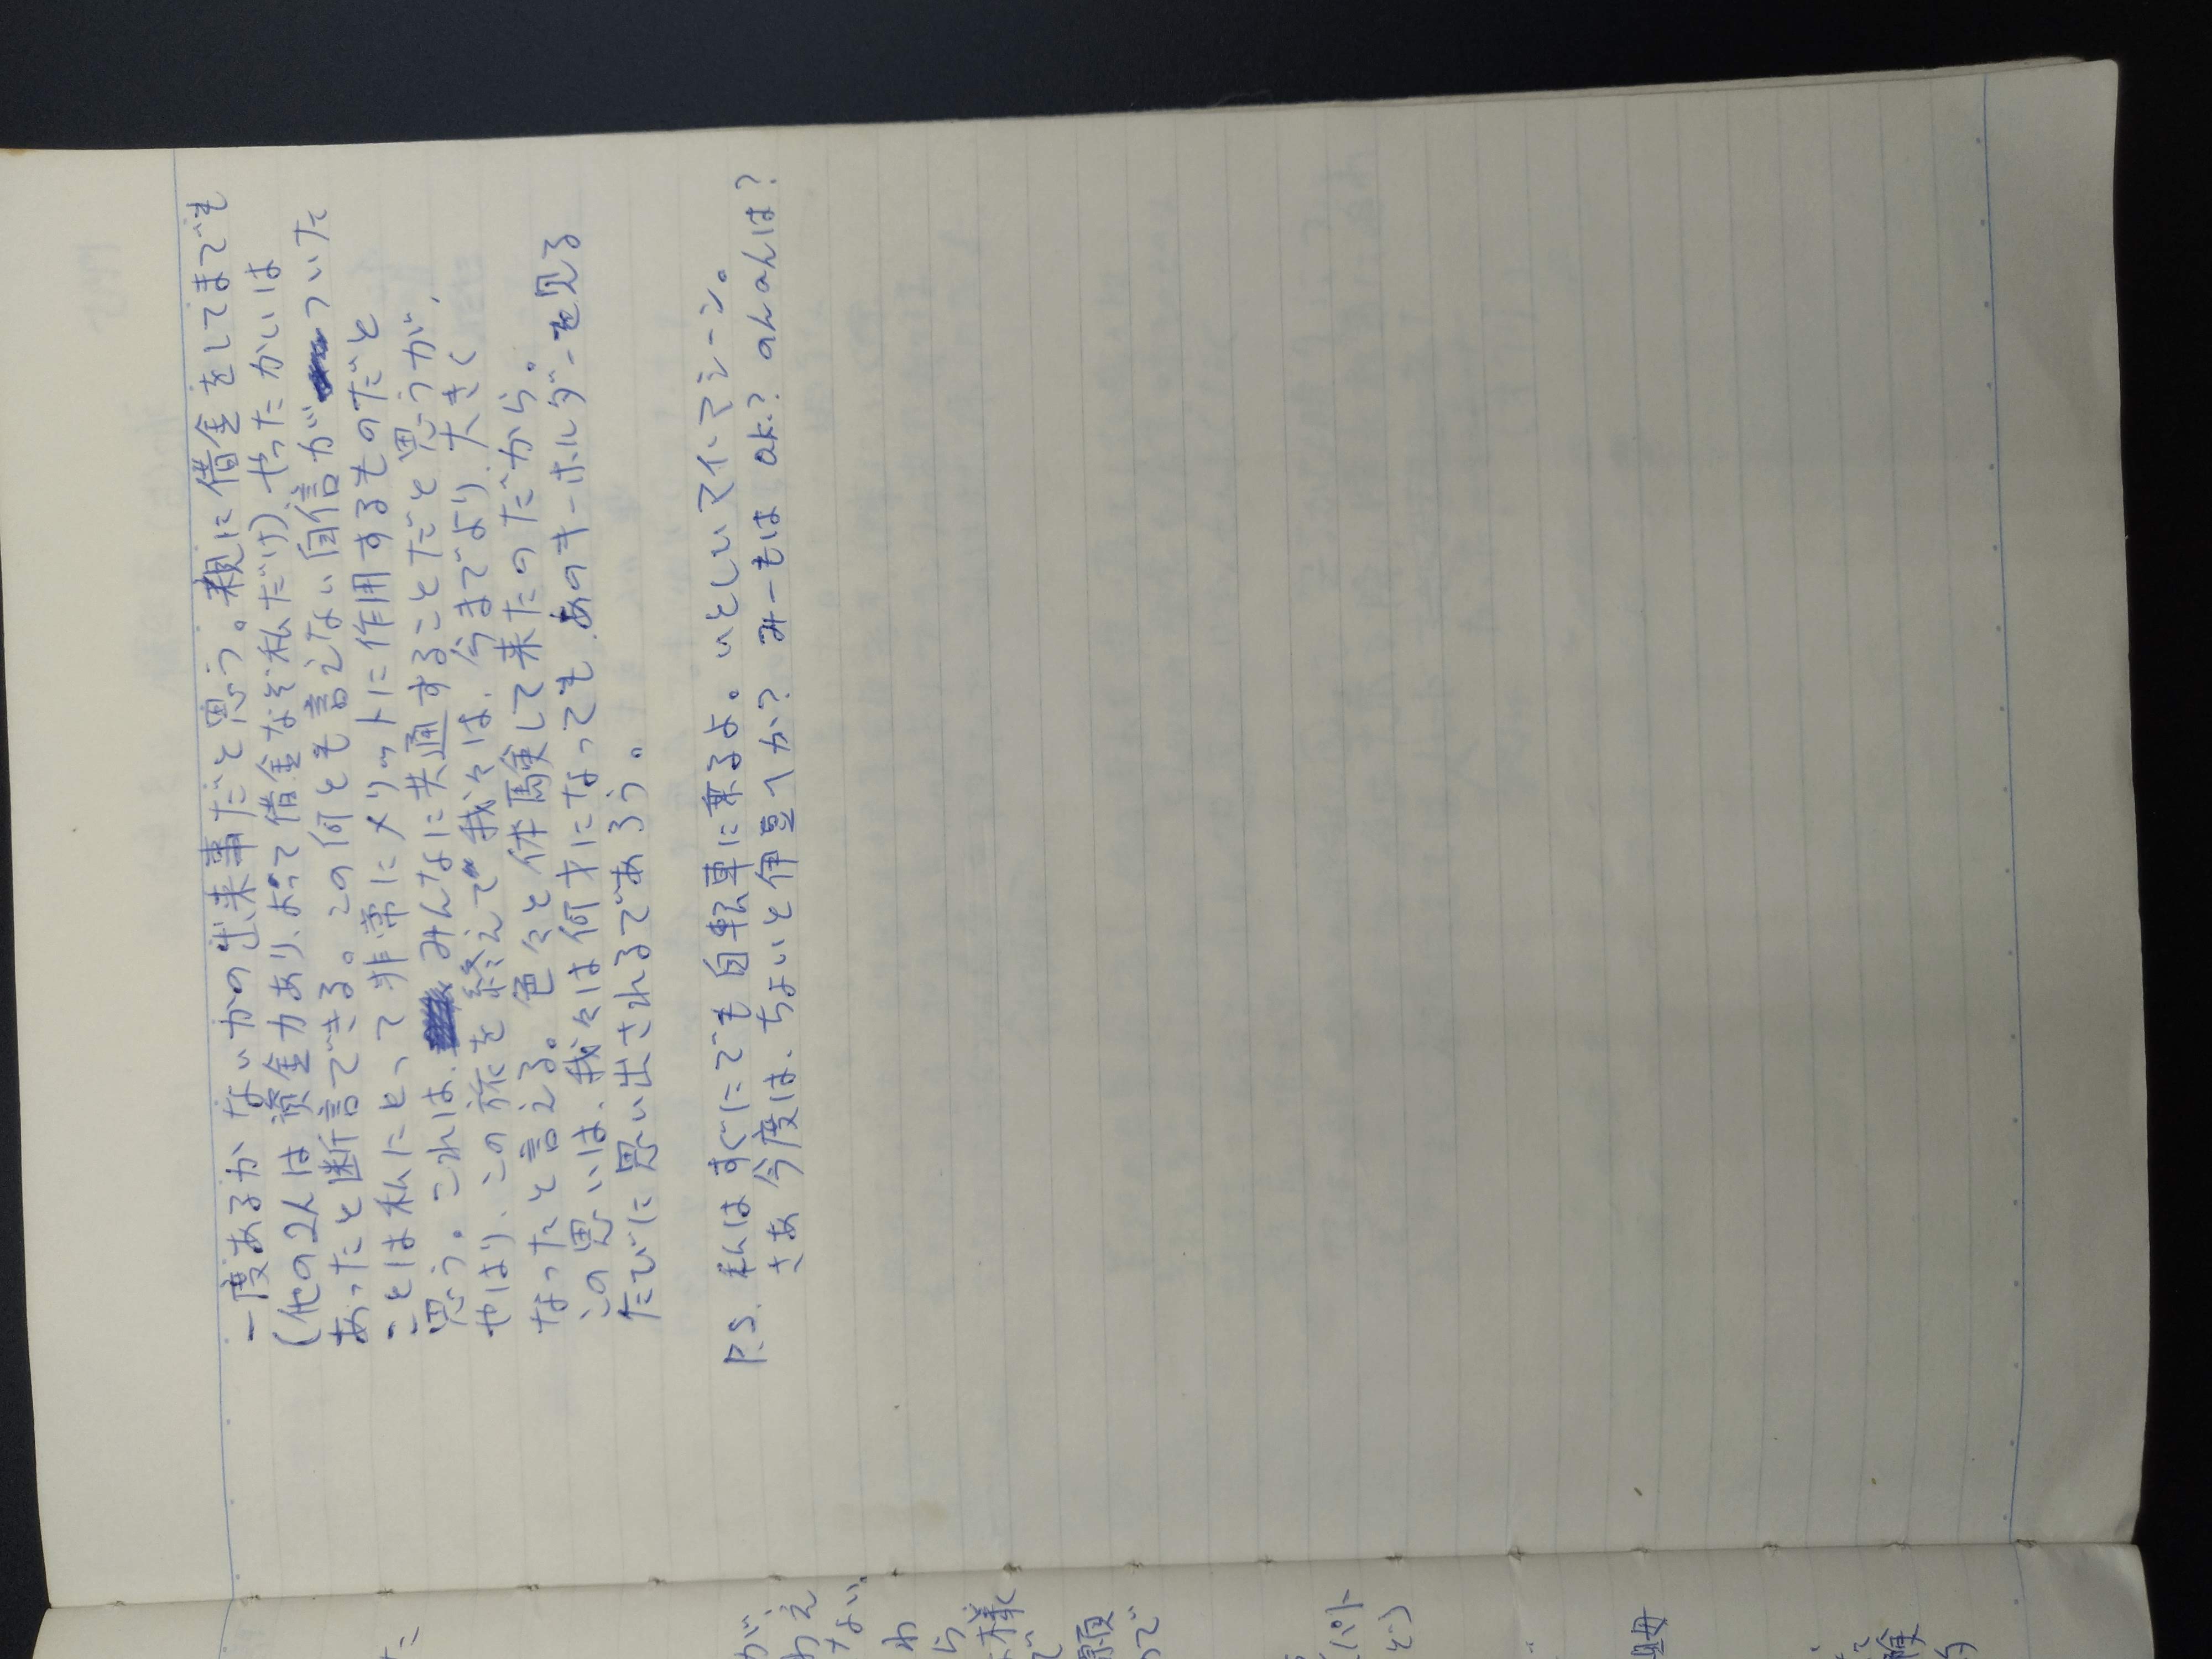 一度あるかないかの出来事だと思う。親に借金をしてまでも
(他の2人は資金力あり、よって借金なぞ私だけ)、やったかいは
あったと断言できる。この何とも言えない自信がついた
ことは私にとって非常にメリットに作用するものだと
思う。これは、みんなに共通することだと思うが、
やはり、この旅を終えて我々は、今までより、大きく
なったと言える。色々と体験して来たのだから。
この思いは、我々は何才になっても、あのキーホルダーを見る
たびに思い出されるであろう。
P.S. 私はすぐにでも自転車に乗るよ。いとしいマイ・マシーン。
さあ今度は、ちょいと伊豆へか? みーもは ok? のんのんは?